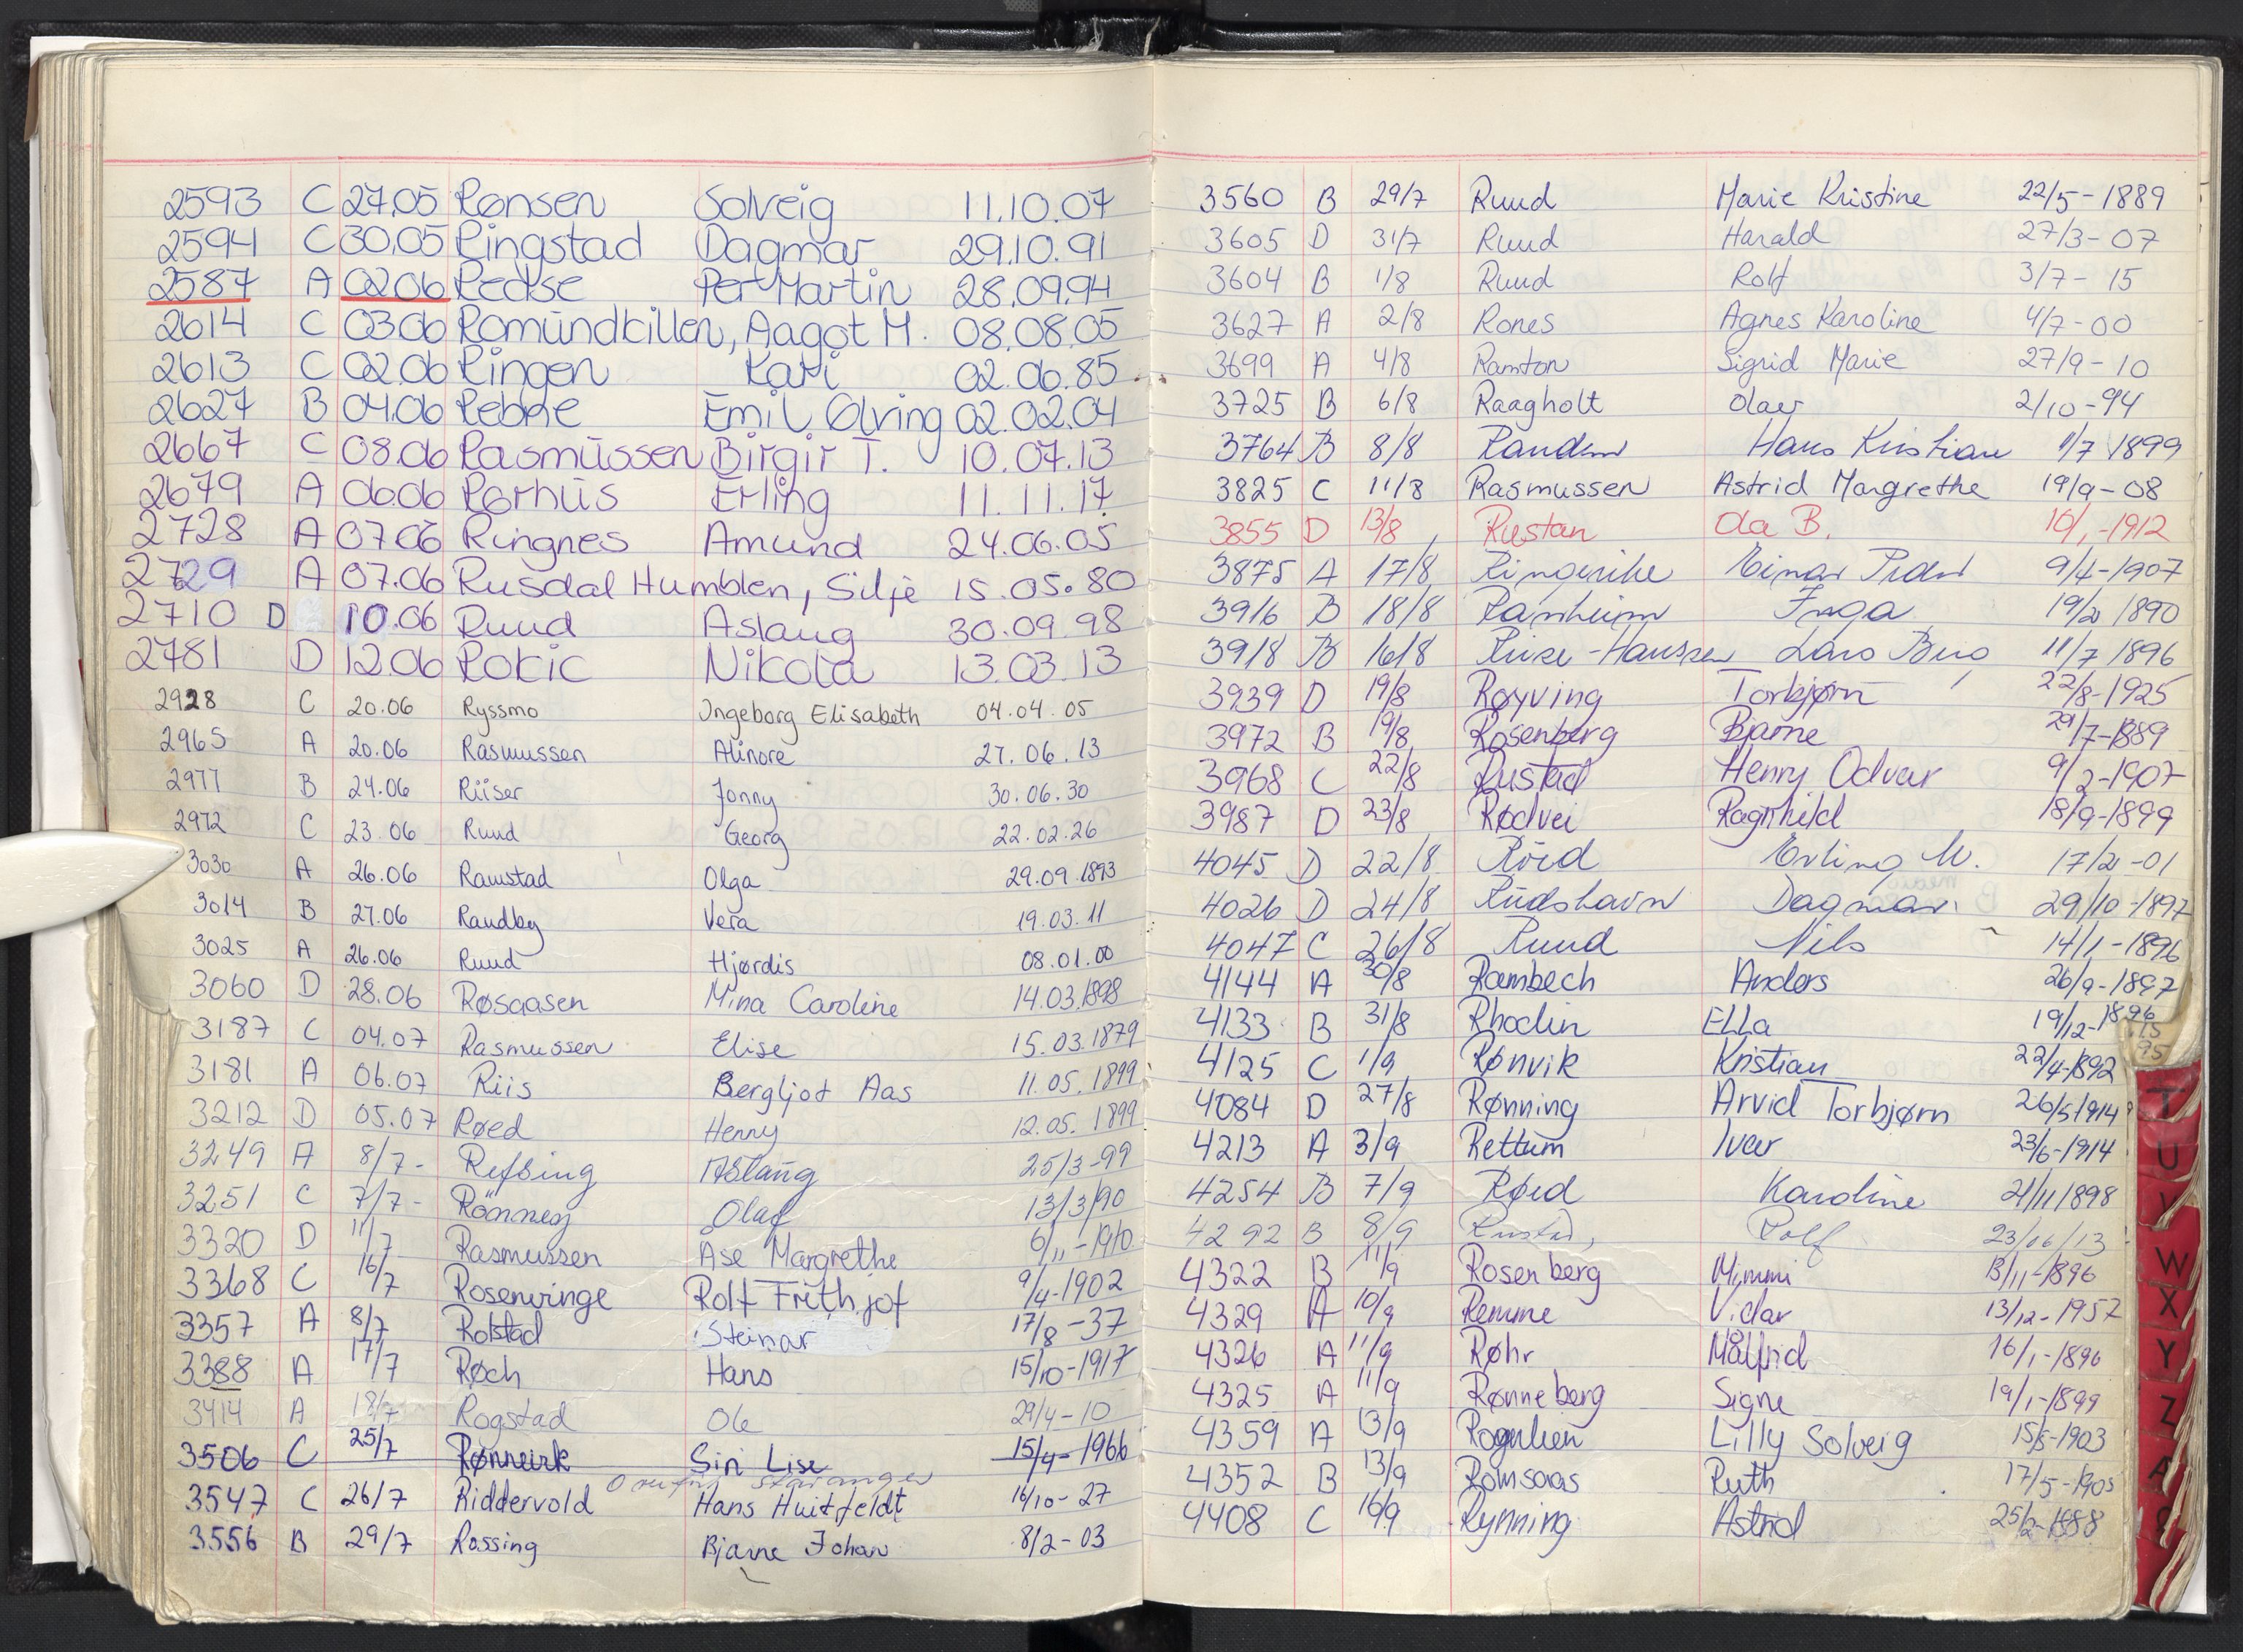 2593 C 27.05 Rønsen Solveig 11.10.07
2594 C 30.05 Ringstad Dagmar 29.10.91
2587 A 02.06 Per Martin 28.09.94
2614 C 03.06 Romundkillen, Aagot M. 08.08.05
2613 C 02.06 Ringen Kari 02.06.85
2627 B 04.06 Rebne Emil Ølving 02.02.04
2667 C 08.06 Rasmussen Birgir T. 10.07.13
2679 A 06.06 Rorhus Erling 11.11.17
2728 A 07.06 Ringnes Amund 24.06.05
2729 A 07.06 Rusdal Humblen, Silje 15.05.80
2710 D 10.06 Ruud Aslaug 30.09.98
2781 D 12.06 Rokic Nikola 13.03.13
2928 C 20.06 Ryssmo Ingeborg Elisabeth 04.04.05
2965 A 20.06 Rasmussen Alinore 27.06.13
2977 B 24.06 Riiser Jonny 30.06.30
2972 C 23.06 Ruud Georg 22.02.26
3030 A 26.06 Ramstad Olga 29.09.1893
3014 B 27.06 Randby Vera 19.03.11
3025 A 26.06 Ruud Hjørdis 08.01.00
3060 D 28.06 Røsaasen Mina Caroline 14.03.1898
3187 C 04.07 Rasmussen Elise 15.03.1879
3181 A 06.07 Riis Bergljot Aas 11.05.1899
3212 D 05.07 Røed Henny 12.05.1899
3249 A 8/7- Refsing Aslaug 25/3-99
3251 C 7/7- Olaf 13/3/90
3320 D 11/7 Rasmussen Åse Margrethe 6/11-1910
3368 C 16/7 Rosenvinge Rolf Frithjof 9/4-1902
3357 A 8/7 Rolstad Steinar 17/8-37
3388 A 17/7 Røch Hans 15/10-1917
3414 A 18/7 Rogstad Ole 29/4-10
3506 C 25/7 Rønnevik Siri Lise 15/9-1966
Overført Stavanger
3547 C 26/7 Riddervold Hans Huitfeldt 16/10-27
3556 B 29/7 Rossing Bjarne Johan 8/2-03
3560 B 29/7 Ruud Marie Kristine 22/5-1889
3605 D 31/7 Ruud Harald 27/3-07
3604 B 1/8 Ruud Rolf 3/7-15
3627 A 2/8 Rones Agnes Karoline 4/7-00
3699 A 4/8 Ramton Sigrid Marie 27/9-10
3725 B 6/8 Raagholt Olav 2/10-94
3764 B 8/8 Randem Hans Kristian 1/7 1899
3825 C 11/8 Rasmussen Astrid Margrethe 19/9-08
3855 D 13/8 Rustan Ola B. 10/1-1912
3875 A 17/8 Ringerike Einar 9/4-1907
3916 B 18/8 Ramheim Inga 19/2 1890
3918 B 16/8 Lars 11/7 1896
3939 D 19/8 Røyving Torbjørn 22/8-1925
3972 B 19/8 Rosenberg Bjarne 29/7-1889
3968 C 22/8 Rustad Henry Odvar 9/2-1907
3987 D 23/8 Rødvei Ragnhild 18/9-1899
4045 D 22/8 Röed Erling M. 17/2-01
4026 D 24/8 Rudshavn Dagmar 29/10-1897
4047 C 26/8 Ruud Nils 14/1-1896
4144 A 30/8 Rambech Anders 26/9-1897
4133 B 31/8 Rhodin Ella 19/12-1896
4125 C 1/9 Rønvik Kristian 22/4-1892
4084 D 27/8 Rønning Arvid Torbjørn 26/5 1914
4213 A 3/9 Rettum Iver 23/6-1914
4254 B 7/9 Røed Karoline 21/11 1898
4292 B 8/9 Rustad, Rolf 23/06/13
4322 B 11/9 Rosenberg Mimmi 13/11-1896
4329 A 10/9 Remme Vidar 13/12-1957
4326 A 11/9 Røhr Målfrid 16/1-1896
4325 A 11/9 Rønneberg Signe 19/1-1899
4359 A 13/9 Rognlien Lilly Solveig 15/5-1903
4352 B 13/9 Romsaas Ruth 17/5-1905
4408 C 16/9 Rynning Astrid 25/2-1888
T
U
V
W
X
Y
Z